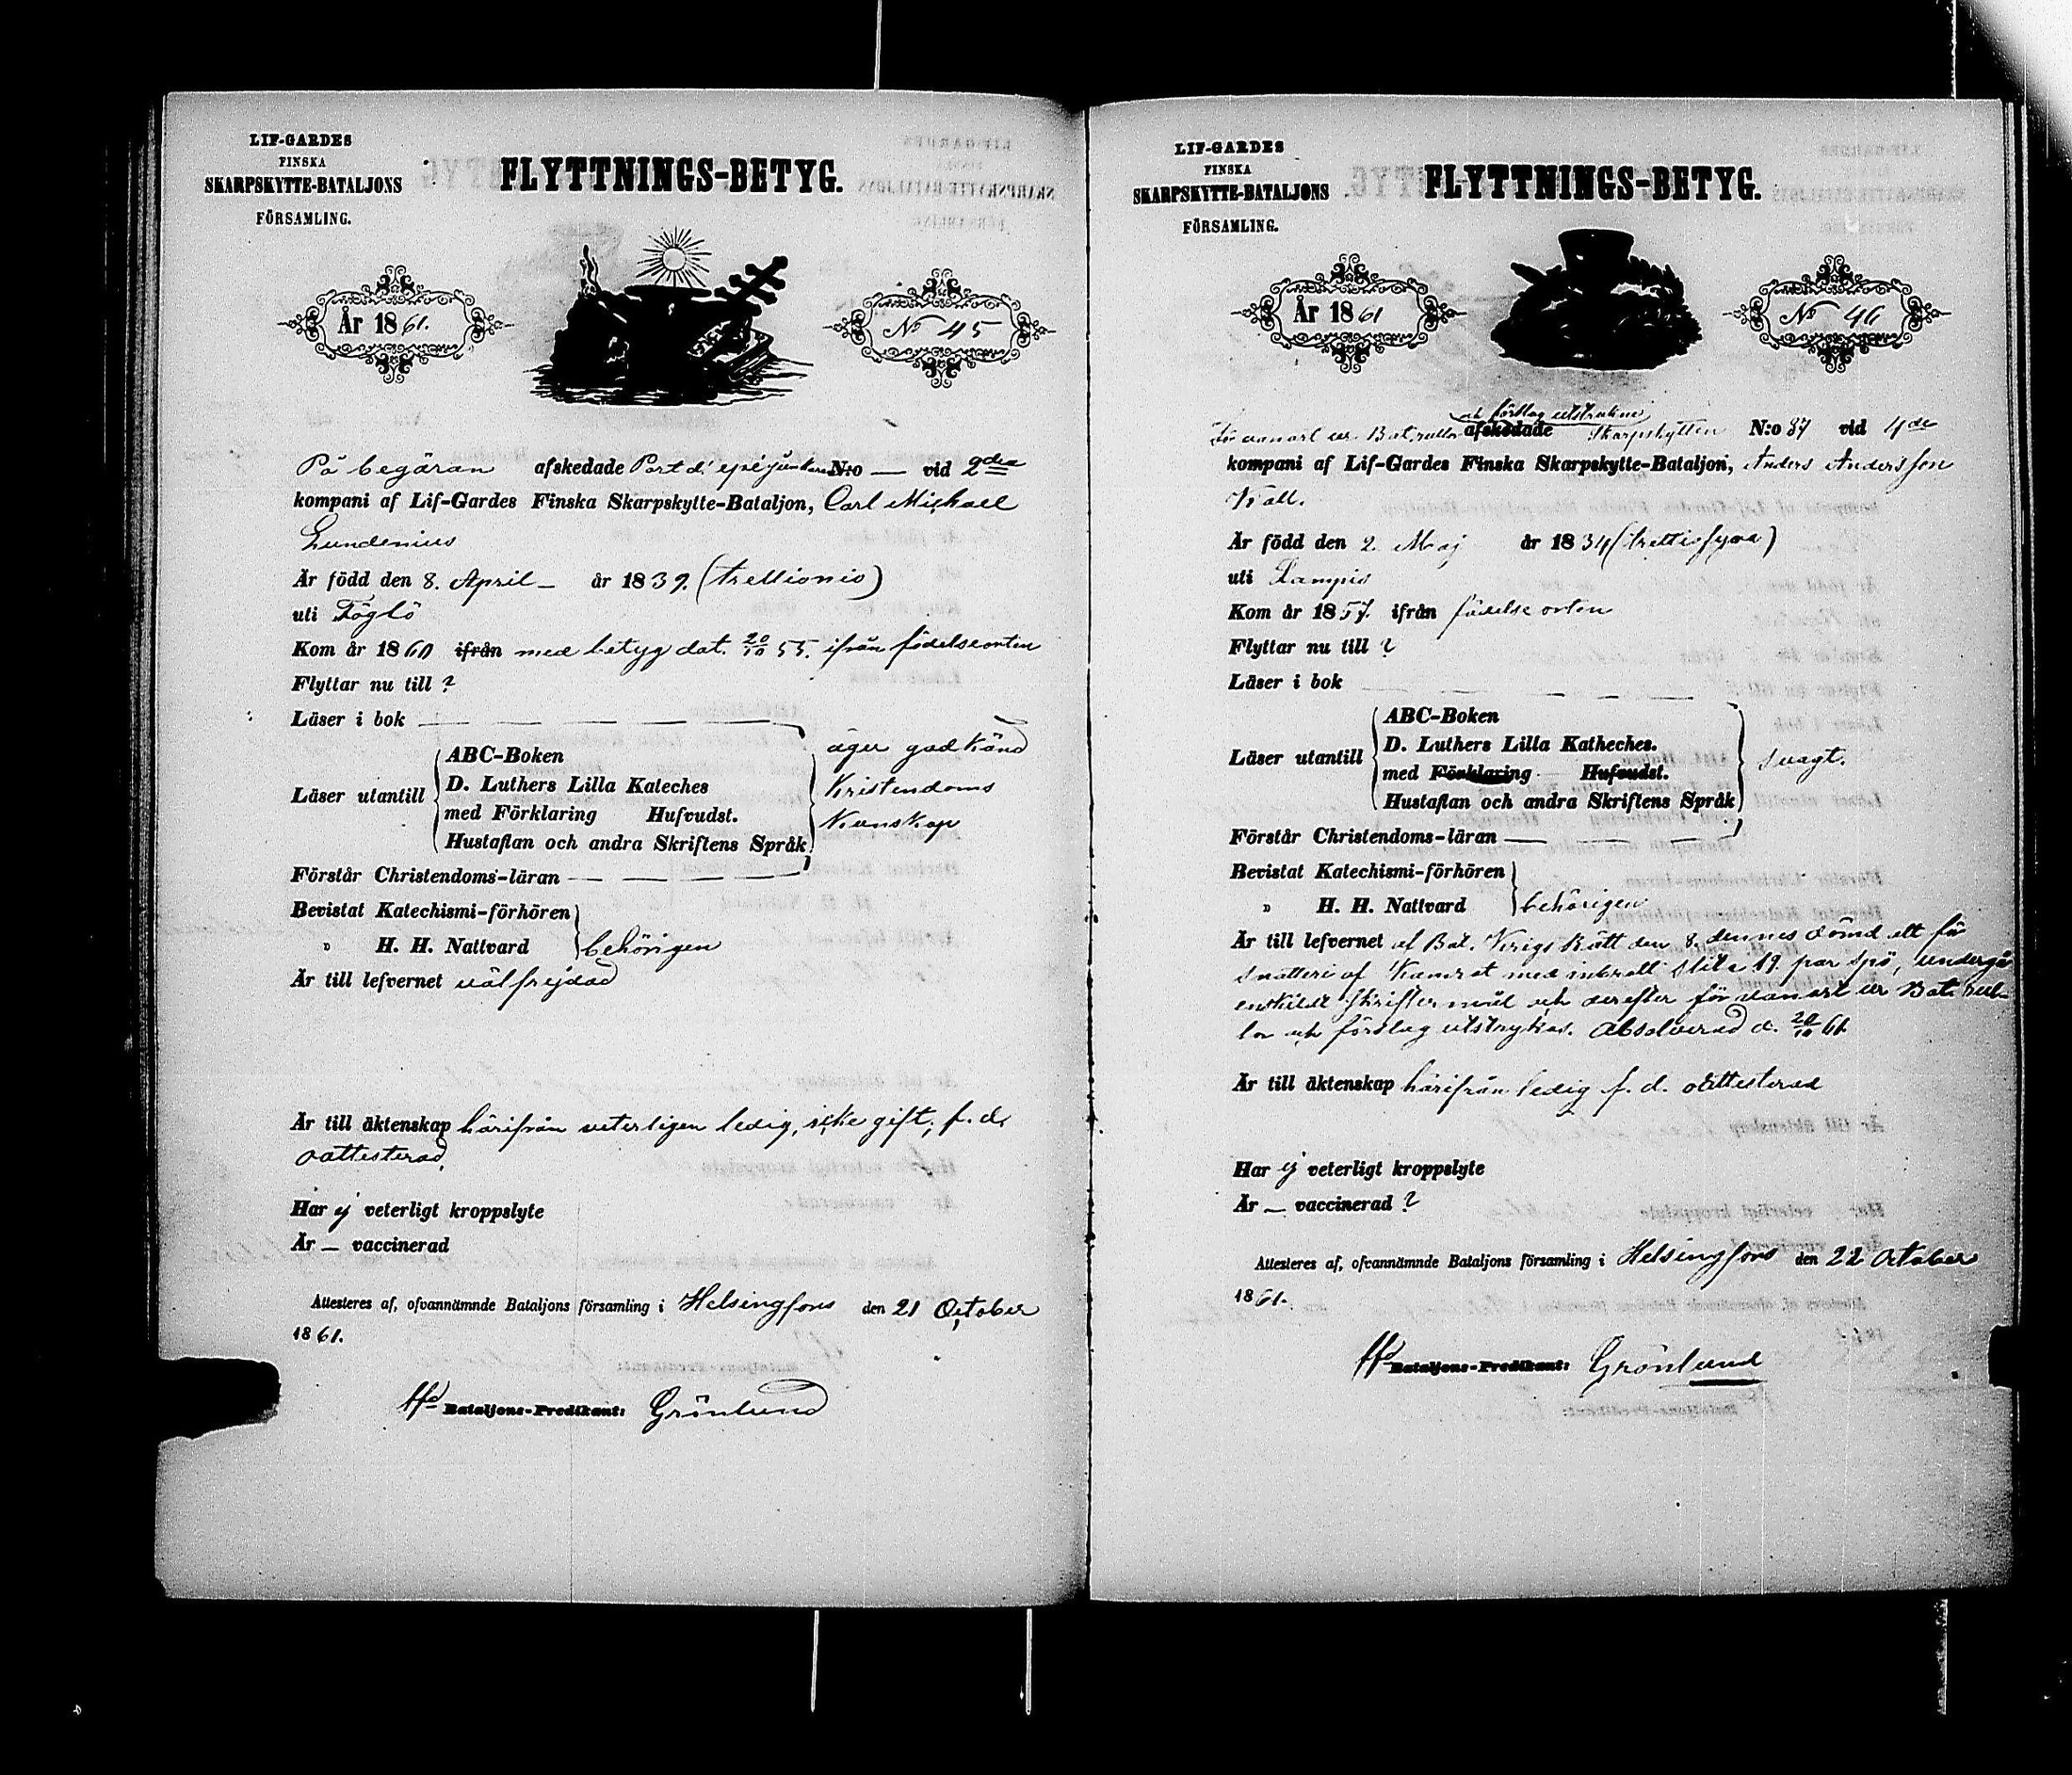 LIF-GARDES
FINSKA
SKARPSKYTTE-BATALJONS
FÖRSAMLING.
FLYTTNINGS-BETYG.
År 1861.
No 45
På begäran afskedade Port d'epéjunkaren N:o — vid 2dra
kompani af Lif-Gardes Finska Skarpskytte-Bataljon, Carl Michael
Lundenius
Är född den 8. April — år 1839. (trettionio)
uti Föglö
Kom år 1860 ifrån med betyg dat. 20/10 55. ifrån födelseorten
Flyttar nu till ?
Läser i bok
Läser utantill
ABC-Boken
D. Luthers Lilla Kateches
med Förklaring Hufvudst.
Hustaflan och andra Skriftens Språk
äger godkänd
Kristendoms
Kunskap
Förstår Christendoms-läran
Bevistat Katechismi-förhören
" H. H. Nattvard behörigen
Är till lefvernet välfrejdad
Är till äktenskap härifrån veterligen ledig, icke gift, f. d.
oattesterad.
Har ej veterligt kroppslyte
Är — vaccinerad
Attesteres af, ofvannämnde Bataljons församling i Helsingfors den 21 October
1861.
Bataljons-Predikant: Grönlund
LIF-GARDES
FINSKA
SKARPSKYTTE-BATALJONS
FÖRSAMLING.
FLYTTNINGS-BETYG.
År 1861
No 46
och förslag utstrukne
För vanart ur Bat. rullor afskedade Skarpskytten N:o 87 vid 4de
kompani af Lif-Gardes Finska Skarpskytte-Bataljon, Anders Andersson
Wall.
Är född den 2. Maj år 1834 (trettifyra)
uti Lampis
Kom år 1857. ifrån födelseorten
Flyttar nu till ?
Läser i bok
Läser utantill
ABC-Boken
D. Luthers Lilla Katheches.
med Förklaring Hufvudst.
Hustaflan och andra Skriftens Språk
svagt.
Förstår Christendoms-läran
Bevistat Katechismi-förhören
" H. H. Nattvard behörigen
Är till lefvernet af Bat. Krigs Rätt den 8. dennes dömd att för
snatteri af Kamrat med inbrott slita 19. par spö, undergå
enskildt skriftermål och derefter för vanart ur Bat. rul-
lor och förslag utstrykas. Absolverad d. 20/10 61.
Är till äktenskap härifrån ledig f. d. oattesterad
Har ej veterligt kroppslyte
Är — vaccinerad ?
Attesteres af, ofvannämnde Bataljons församling i Helsingfors den 22 October
1861.
Bataljons-Predikant: Grönlund